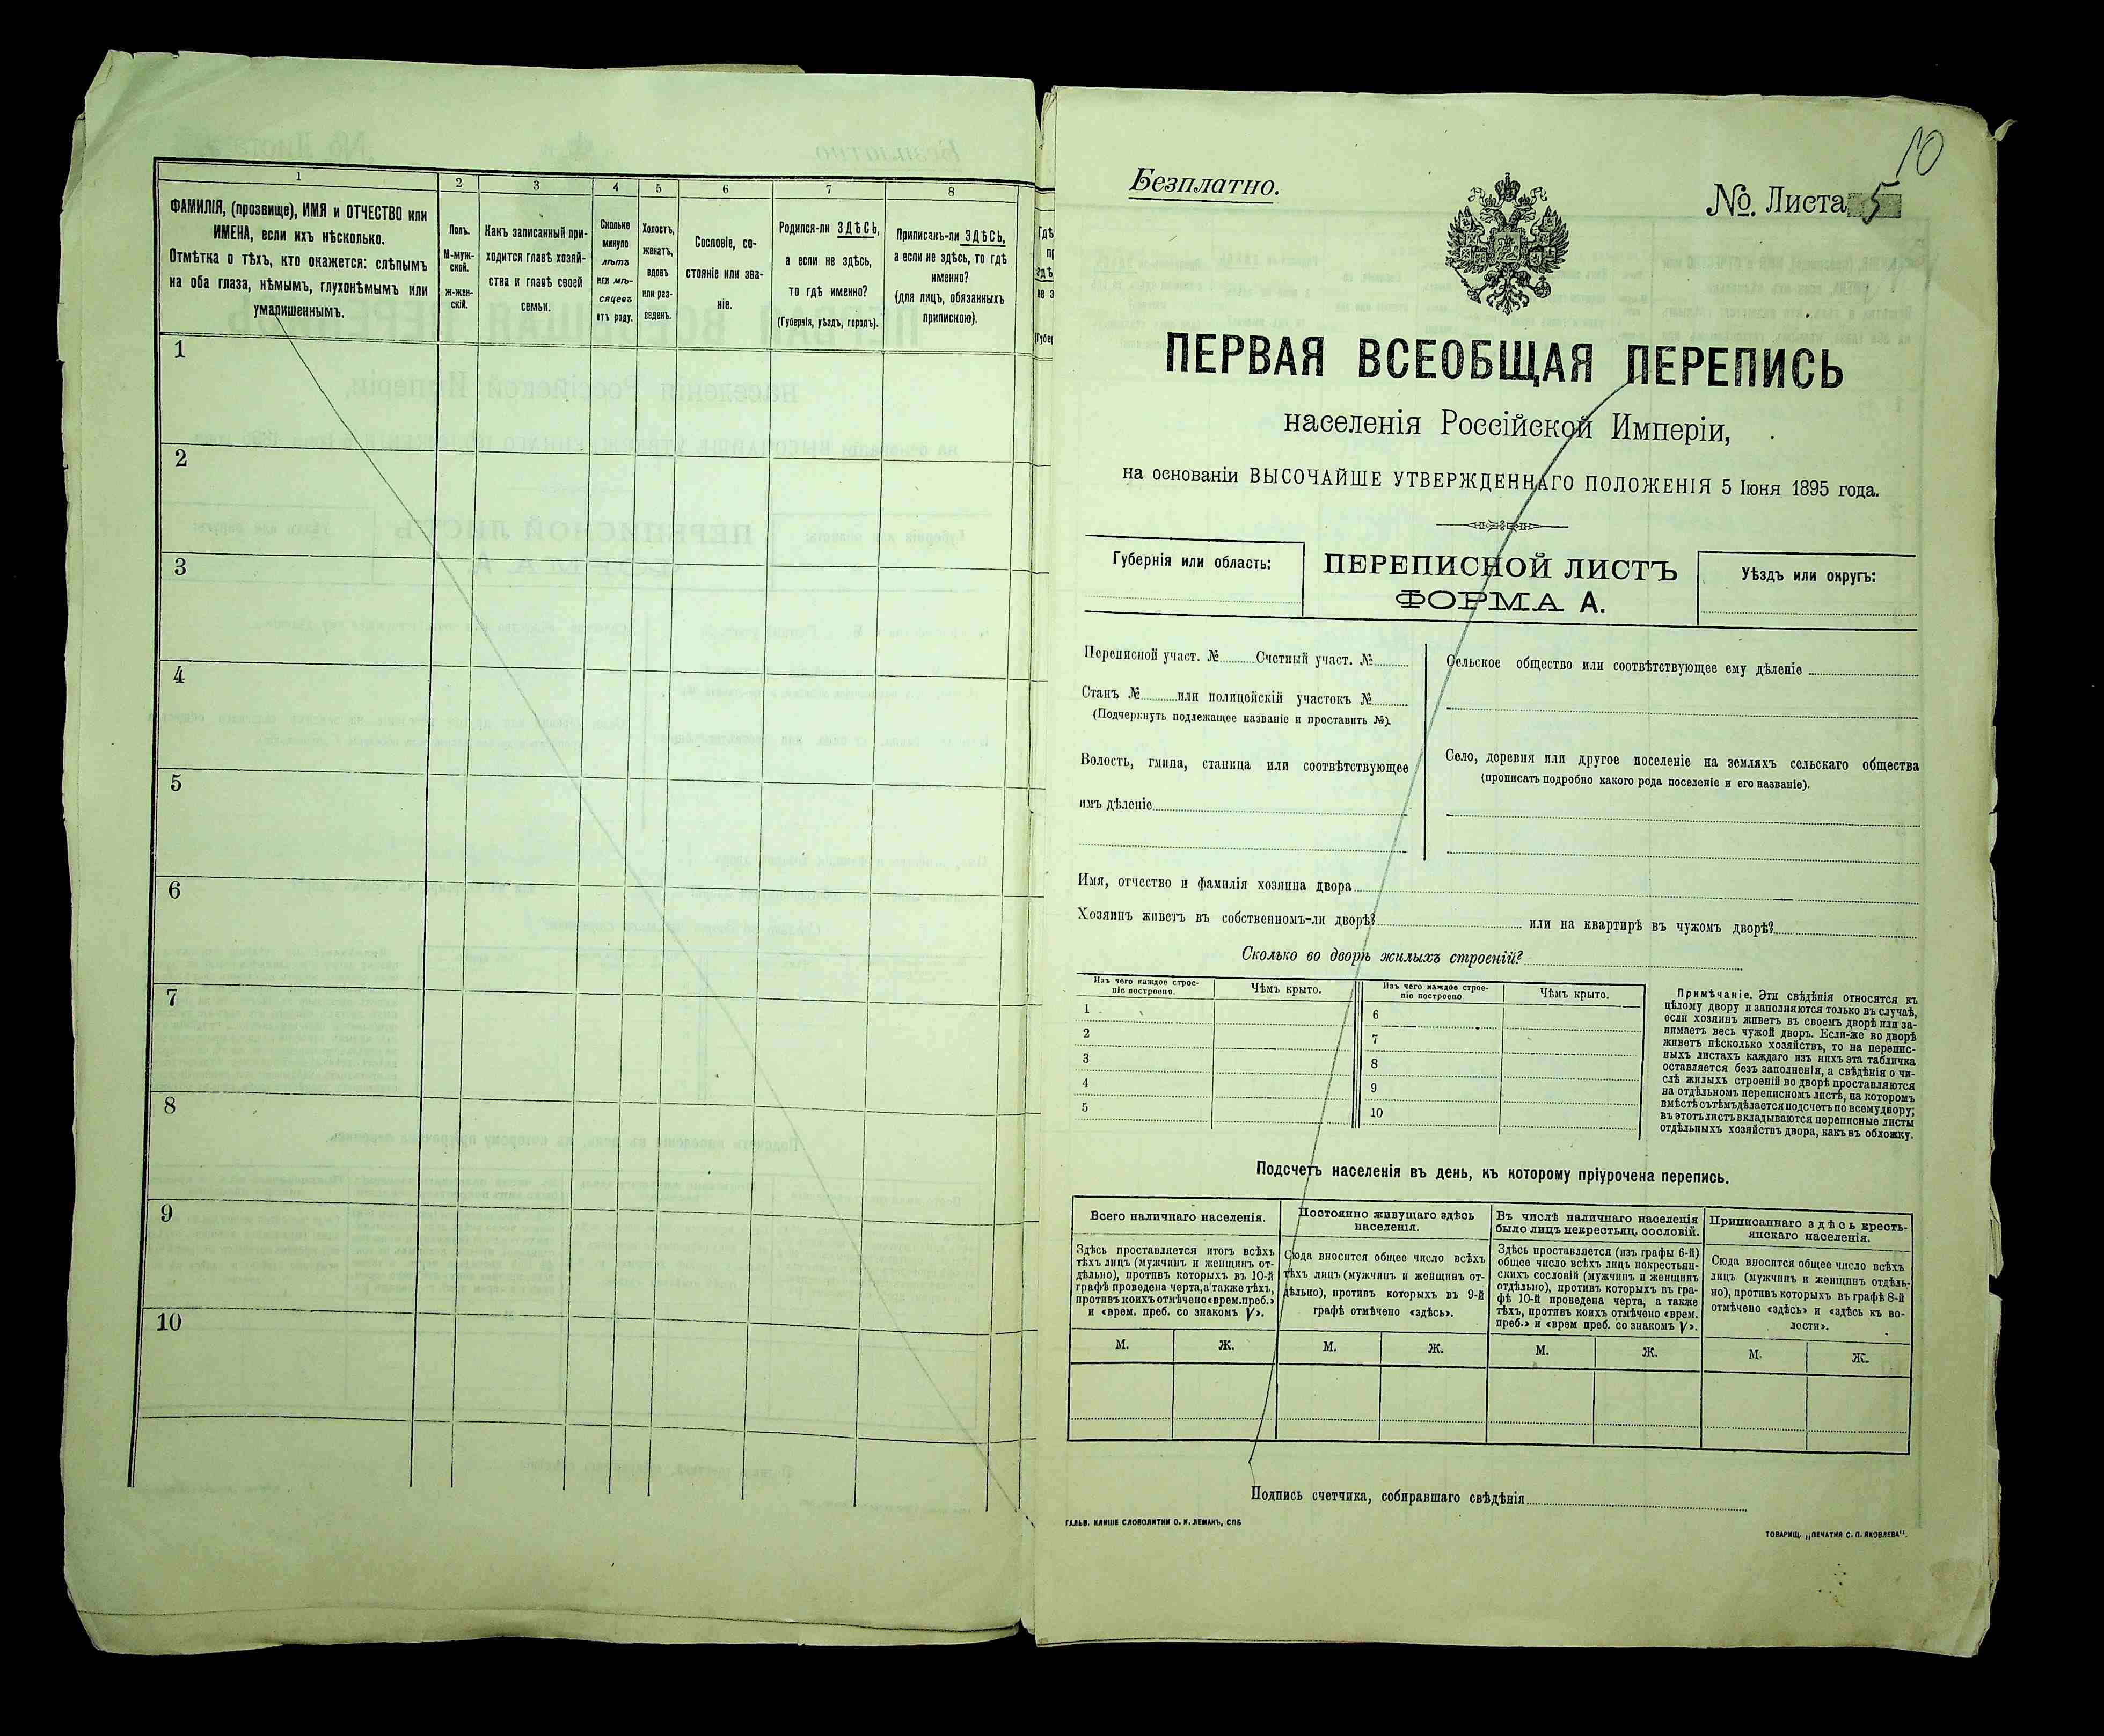 1
2
3
4
5
6
7
8
ФАМИЛІЯ, (прозвище), ИМЯ и ОТЧЕСТВО или
ИМЕНА, если ихъ нѣсколько.
Отмѣтка о тѣхъ, кто окажется: слѣпымъ
на оба глаза, нѣмымъ, глухонѣмымъ или
умалишеннымъ.
Полъ.
М-муж-
ской.
ж-жен-
скій.
Какъ записанный при-
ходится главѣ хозяй-
ства и главѣ своей
семьи.
Сколько
минуло
лѣтъ
или мѣ-
сяцевъ
отъ роду.
Холостъ,
женатъ,
вдовъ
или раз-
веденъ.
Сословіе, со-
стояніе или зва-
ніе.
Родился-ли ЗДѢСЬ,
а если не здѣсь,
то гдѣ именно?
(Губернія, уѣздъ, городъ).
Приписанъ-ли ЗДѢСЬ,
а если не здѣсь, то гдѣ
именно?
(для лицъ, обязанныхъ
припискою).
1
2
3
4
5
6
7
8
9
10
10
Безплатно.
№ Листа 5
ПЕРВАЯ ВСЕОБЩАЯ ПЕРЕПИСЬ
населенія Россійской Имперіи,
на основаніи ВЫСОЧАЙШЕ УТВЕРЖДЕННАГО ПОЛОЖЕНІЯ 5 Іюня 1895 года.
Губернія или область:
ПЕРЕПИСНОЙ ЛИСТЪ
ФОРМА А.
Уѣздъ или округъ:
Переписной участ. № Счетный участ. №
Станъ № или полицейскій участокъ №
(Подчеркнуть подлежащее названіе и проставить №).
Волость, гмина, станица или соотвѣтствующее
имъ дѣленіе
Сельское общество или соотвѣтствующее ему дѣленіе
Село, деревня или другое поселеніе на земляхъ сельскаго общества
(прописать подробно какого рода поселеніе и его названіе).
Имя, отчество и фамилія хозяина двора
Хозяинъ живетъ въ собственномъ-ли дворѣ? или на квартирѣ въ чужомъ дворѣ?
Сколько во дворѣ жилыхъ строеній?
Изъ чего каждое строе-
ніе построено.
Чѣмъ крыто.
Изъ чего каждое строе-
ніе построено
Чѣмъ крыто.
1
2
3
4
5
6
7
8
9
10
Примѣчаніе. Эти свѣдѣнія относятся къ
цѣлому двору и заполняются только въ случаѣ,
если хозяинъ живетъ въ своемъ дворѣ или за-
нимаетъ весь чужой дворъ. Если-же во дворѣ
живетъ нѣсколько хозяйствъ, то на перепис-
ныхъ листахъ каждаго изъ нихъ эта табличка
оставляется безъ заполненія, а свѣдѣнія о чи-
слѣ жилыхъ строеній во дворѣ проставляются
на отдѣльномъ переписномъ листѣ, на которомъ
вмѣстѣ съ тѣмъ дѣлается подсчетъ по всему двору;
въ этотъ листъ вкладываются переписные листы
отдѣльныхъ хозяйствъ двора, какъ въ обложку.
Подсчетъ населенія въ день, къ которому пріурочена перепись.
Всего наличнаго населенія.
Здѣсь проставляется итогъ всѣхъ
тѣхъ лицъ (мужчинъ и женщинъ от-
дѣльно), противъ которыхъ въ 10-й
графѣ проведена черта, а также тѣхъ,
противъ коихъ отмѣчено «врем. преб.»
и «врем. преб. со знакомъ V».
Постоянно живущаго здѣсь
населенія.
Сюда вносится общее число всѣхъ
тѣхъ лицъ (мужчинъ и женщинъ от-
дѣльно), противъ которыхъ въ 9-й
графѣ отмѣчено «здѣсь».
Въ числѣ наличнаго населенія
было лицъ некрестьян. сословій.
Здѣсь проставляется (изъ графы 6-й)
общее число всѣхъ лицъ некрестьян-
скихъ сословій (мужчинъ и женщинъ
отдѣльно), противъ которыхъ въ гра-
фѣ 10-й проведена черта, а также
тѣхъ, противъ коихъ отмѣчено «врем.
преб.» и «врем преб. со знакомъ V».
Приписаннаго здѣсь кресть-
янскаго населенія.
Сюда вносится общее число всѣхъ
лицъ (мужчинъ и женщинъ отдѣль-
но), противъ которыхъ въ графѣ 8-й
отмѣчено «здѣсь» и «здѣсь къ во-
лости».
М. Ж. М. Ж. М. Ж. М. Ж.
Подпись счетчика, собиравшаго свѣдѣнія
ГАЛЬВ. КЛИШЕ СЛОВОЛИТНИ О. И. ЛЕМАНЪ, СПБ
ТОВАРИЩ. „ПЕЧАТНЯ С. П. ЯКОВЛЕВА“.